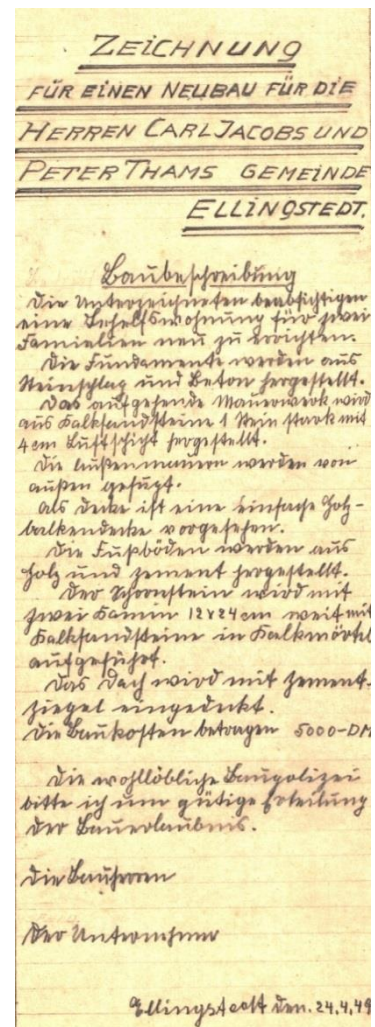 ZEICHNUNG
FÜR EINEN NEUBAU FÜR DIE
HERREN CARL JACOBS UND
PETER THAMS GEMEINDE
ELLINGSTEDT.
Baubeschreibung
Die Unterzeichneten beabsichtigen
eine Behelfswohnung für zwei
Familien neu zu errichten.
Die Fundamente werden aus
Steinschlag und Beton hergestellt.
Das aufgehende Mauerwerk wird
aus Kalksandsteine 1 Stein stark mit
4 cm Luftschicht hergestellt.
Die Außenmauern werden von
außen gefugt.
Als Decke ist eine einfache Holz-
balkendecke vorgesehen.
Die Fußböden werden aus
Holz und Zement hergestellt.
Der Schornstein wird mit
zwei Kamin 12x24 cm weit mit
Kalksandsteine in Kalkmörtel
aufgeführt.
Das Dach wird mit Zement-
ziegel eingedeckt.
Die Baukosten betragen 5000-DM
Die wohllöbliche Baupolizei
bitte ich um gütige Erteilung
der Bauerlaubnis.
Die Bauherren
Der Unternehmer
Ellingstedt den. 24.4.49